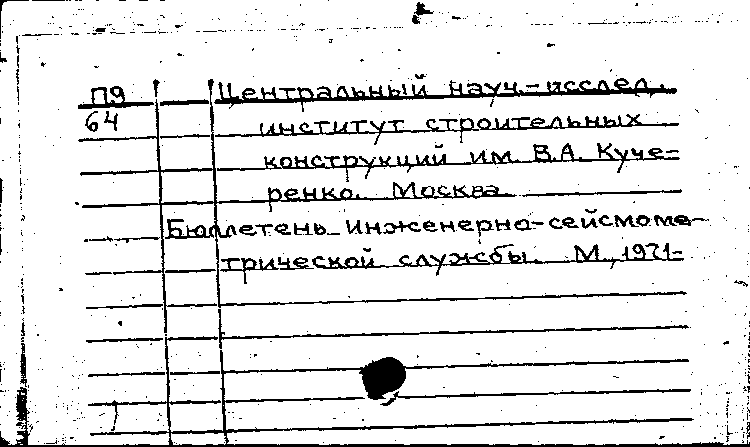 П9 Центральный науч.-исслед.
64 институт строительных
конструкций им. В.А. Куче-
ренко. Москва.
Бюллетень инженерно-сейсмоме-
трической службы. М., 1971-